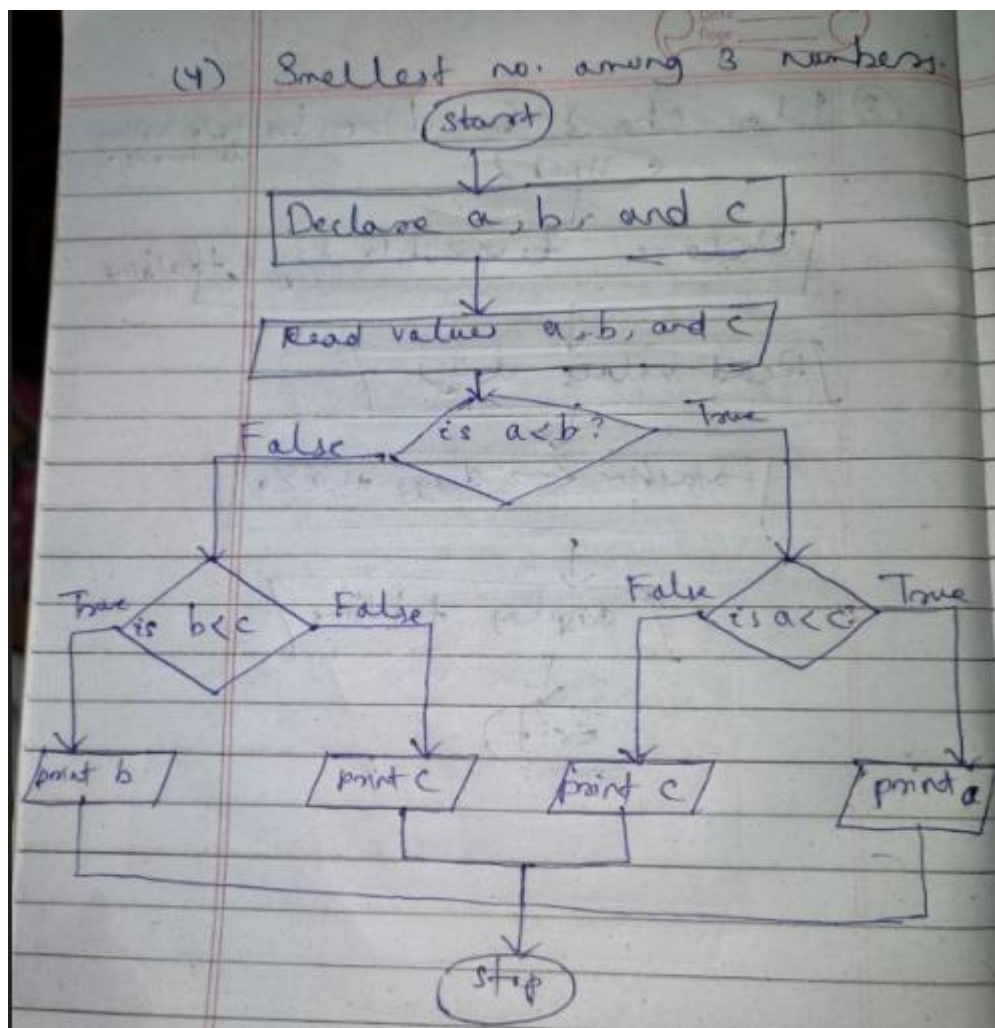 Date
Page
(4) Smallest no. among 3 numbers.
Start
Declare a, b, and c
Read values a, b, and c
is a<b?
False
True
is b<c
True
False
is a<c?
False
True
print b
print c
print c
print a
Stop